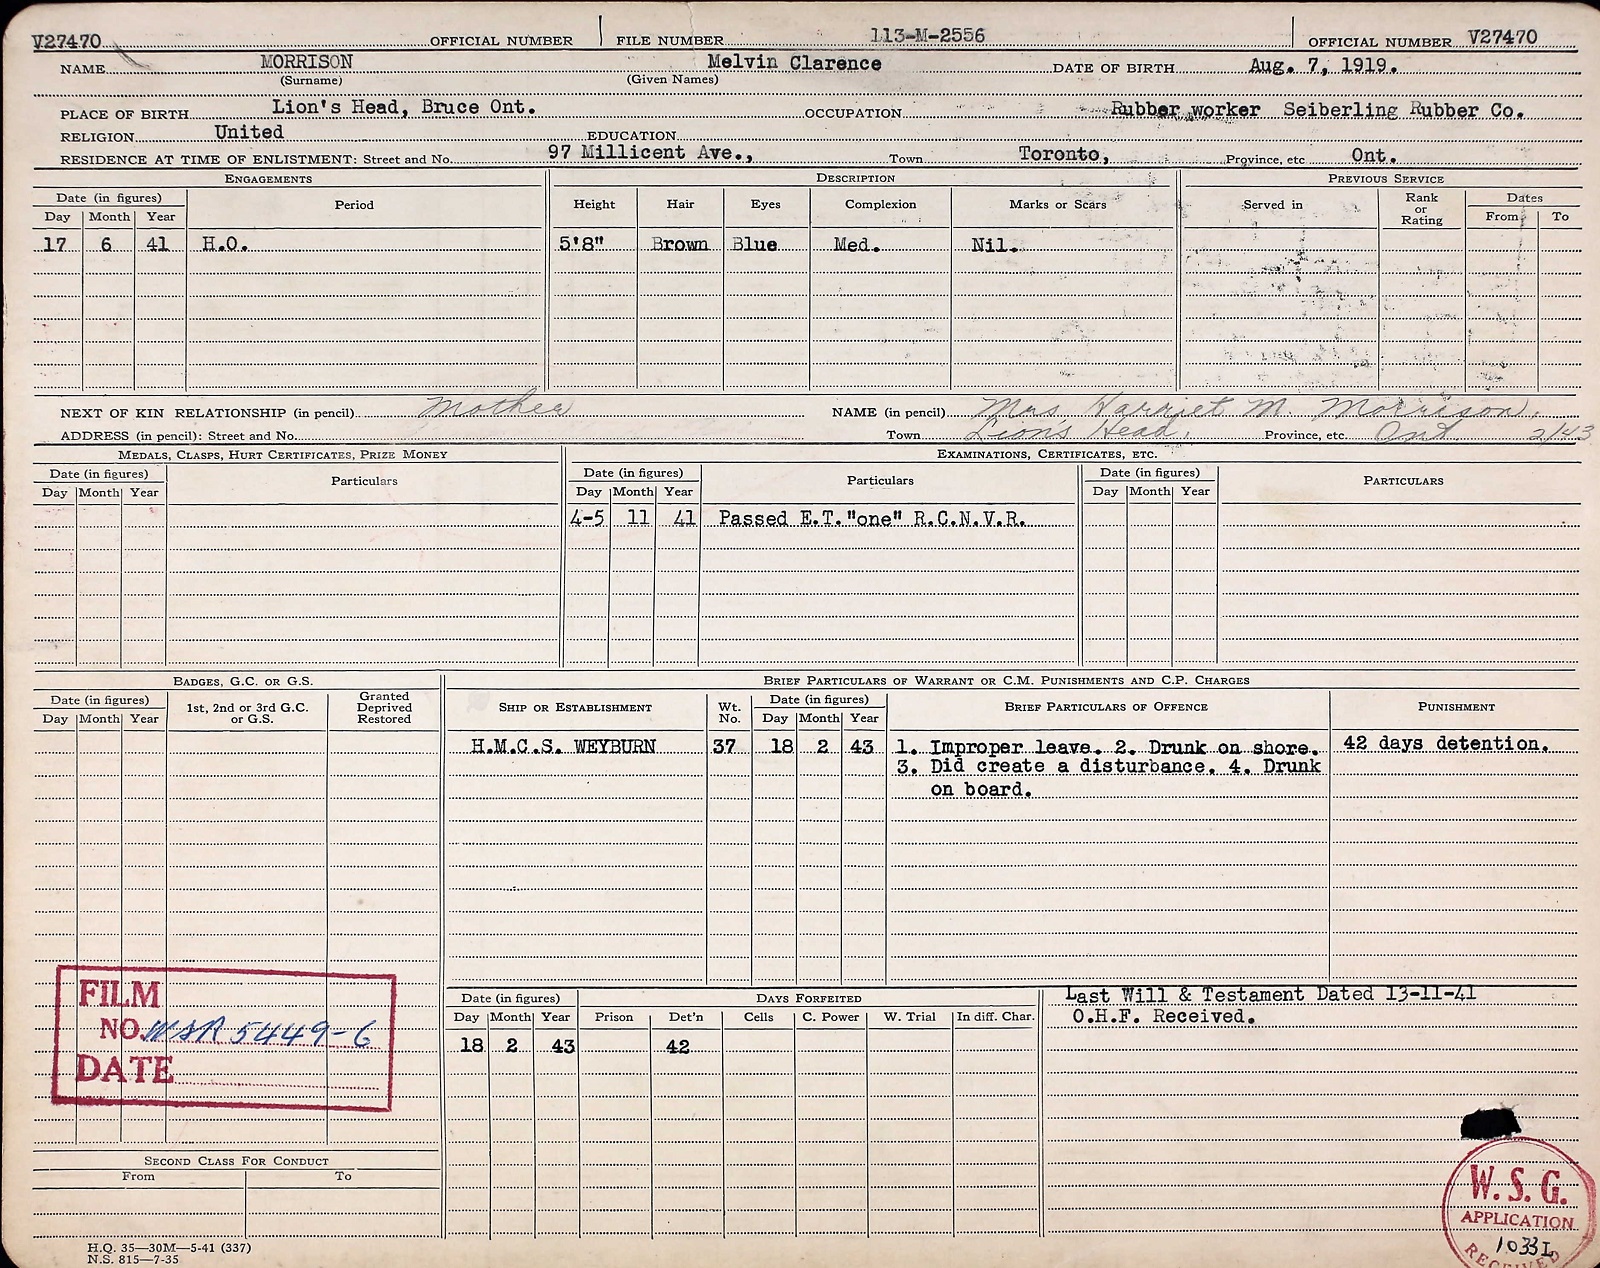 V27470 OFFICIAL NUMBER FILE NUMBER 113-M-2556 OFFICIAL NUMBER V27470
NAME MORRISON Melvin Clarence DATE OF BIRTH Aug. 7, 1919.
(Surname) (Given Names)
PLACE OF BIRTH Lion's Head, Bruce Ont. OCCUPATION Rubber worker Seiberling Rubber Co.
RELIGION United EDUCATION
RESIDENCE AT TIME OF ENLISTMENT: Street and No. 97 Millicent Ave., Town Toronto, Province, etc Ont.
ENGAGEMENTS DESCRIPTION PREVIOUS SERVICE
Date (in figures) Period Height Hair Eyes Complexion Marks or Scars Served in Rank or Rating Dates
Day Month Year From To
17 6 41 H.O. 5'8" Brown Blue Med. Nil.
NEXT OF KIN RELATIONSHIP (in pencil) Mother NAME (in pencil) Mrs Harriet M. Morrison.
ADDRESS (in pencil): Street and No. Town Lion's Head, Province, etc. Ont 2/43
MEDALS, CLASPS, HURT CERTIFICATES, PRIZE MONEY EXAMINATIONS, CERTIFICATES, ETC.
Date (in figures) Particulars Date (in figures) Particulars Date (in figures) PARTICULARS
Day Month Year Day Month Year Day Month Year
4-5 11 41 Passed E.T."one" R.C.N.V.R.
BADGES, G.C. OR G.S. BRIEF PARTICULARS OF WARRANT OR C.M. PUNISHMENTS AND C.P. CHARGES
Date (in figures) 1st, 2nd or 3rd G.C. or G.S. Granted Deprived Restored SHIP OR ESTABLISHMENT Wt. No. Date (in figures) BRIEF PARTICULARS OF OFFENCE PUNISHMENT
Day Month Year Day Month Year
H.M.C.S. WEYBURN 37 18 2 43 1. Improper leave. 2. Drunk on shore. 42 days detention.
3. Did create a disturbance. 4. Drunk
on board.
FILM
NO. WSR 5449-6
DATE
Date (in figures) DAYS FORFEITED Last Will & Testament Dated 13-11-41
Day Month Year Prison Det'n Cells C. Power W. Trial In diff. Char. O.H.F. Received.
18 2 43 42
SECOND CLASS FOR CONDUCT
From To
W.S.G.
APPLICATION
1033L
RECEIVED
H.Q. 35—30M—5-41 (337)
N.S. 815—7-35